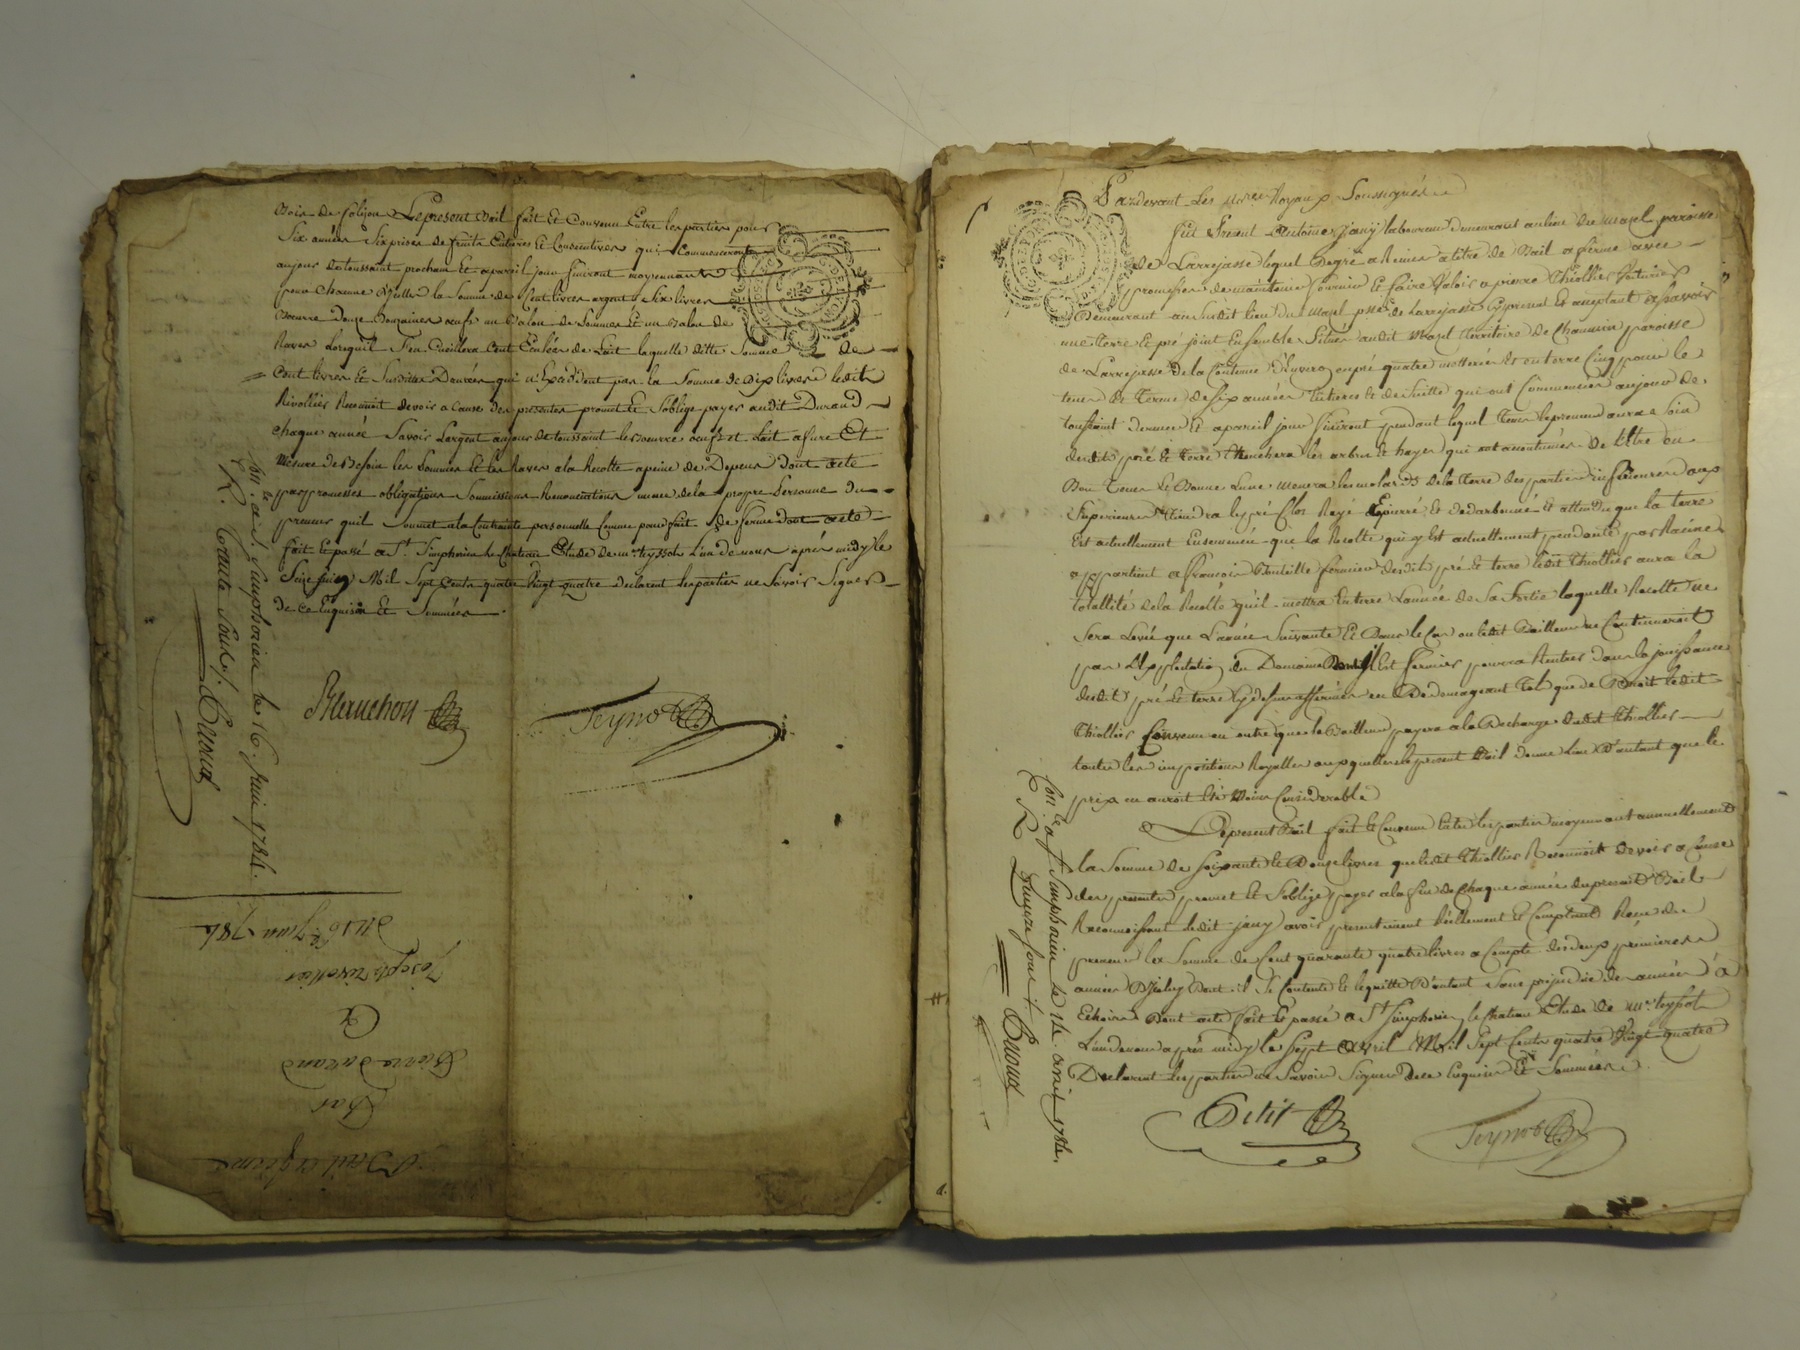 Bois de Le present Bail fait et Convenu Entre les parties pour
Six années Six prises de fruits Entieres Et Consecutives qui Commenceront
au jour de toussaint prochain Et a pareil jour finiront moyennant
pour Chacune la Somme de Cent livres argent Six livres
Beurre Douze Douzaines œufs un Balon de Pommes Et un Balon de
Raves Lorsquil Cent de Lait laquelle ditte Somme de
Cent livres Et Susdittes Denrées qui n'Exceddent pas la Somme de Dix livres ledit
Rivollier Reconnoit devoir a Cause des presentes promet Et S'oblige payer audit Durand
Chaque année Savoir Largent au jour de toussaint le Beurre œufs et Lait a fure Et
Mesure de Besoin les Pommes Et les Raves a la Recolte a peine de Depens Dont acte
par promesses obligations Soumissions Renonciations meme de la propre Personne du
preneur quil Soumet a la Contrainte personnelle Comme pour fait de ferme dont acte
fait Et passé a St. Simphorien le Chateau Etude de me. teyssot L'un de nous après midy le
Seize juin Mil Sept Cents quatre Vingt quatre declarent les parties ne Savoir Signer
De ce Enquises Et Sommées
Teynot
Con. le a St. Simphorien le 16 juin 1784.
R. trente Sous
du 16 juin 1784
Joseph Rivollier
a
Pierre Durand
Par
Bail a ferme
Pardevant Les Royaux Soussignés
fut Present Antoine Jany laboureur Demeurant au lieu du Mazel paroisse
de Larrajasse lequel Degré a Remis a titre de Bail a ferme avec
promesses de maintenir fournir Et faire Valoir a pierre Thiollier
Demeurant au Susdit lieu du Mazel psse. de Larrajasse present Et acceptant a Savoir
une terre Et pré joint Ensemble Situes audit Mazel territoire de Chaumin paroisse
de Larrajasse De la Contenue d'Environ en pré quatre Et en terre Cinq pour le
tems Et terme de Six années Entieres Et de Suitte qui ont Commencées au jour de
toussaint dernier Et a pareil jour finiront pendant lequel tems le preneur aura Soin
desdits pré Et terre les arbres Et hayes qui ont accoutumés de L'Etre en
Bon tems Et Bonne Lune menera les molards de la terre des parties inferieures aux
Superieures tiendra le pré Clos Rayé Epierré Et Et attendu que la terre
Est actuellement Ensemencée que la Recolte qui y Est actuellement pendante par Racine
appartient a francois fermier desdits pré Et terre ledit Thiollier aura la
totallité de la Recolte qu'il mettra En terre L'année de Sa Sortie laquelle Recolte ne
Sera Levée que L'année Suivante Et Dans le Cas ou ledit Bailleur ne Continueroit
pas L'Exploitation du Domaine Dont il Est fermier pourra Rentrer dans la jouissance
desdits pré Et terre Cy dessus affermés en Le Dedomageant tel que de Droit ledit
Thiollier Convenu en outre que le Bailleur payera a la Decharge dudit Thiollier
toutes les impositions Royalles auxquelles le present Bail donne Lieu D'autant que le
prix en auroit Eté Moins Considerable
Le present Bail fait Et Convenu Entre les parties moyennant annuellement
la Somme de Soixante Et Douze livres que ledit Thiollier Reconnoit devoir a Cause
des presentes promet Et S'oblige payer a la fin de Chaque année du present Bail
Reconnoissant ledit jany avoir presentement Réellement Et Comptant Reçu du
preneur la Somme de Cent quarante quatre livres a Compte des deux premieres
années Dont il Se Contente Et le quitte D'autant Sans prejudice des années a
Echoir Dont acte fait Et passé a St. Simphorien le Chateau Etude de me. teyssot
L'un de nous après midy le Sept avril Mil Sept Cents quatre Vingt quatre
Declarent les parties ne Savoir Signer De ce Enquises Et Sommées
Petit
Teynot
Con. le a St. Simphorien le avril 1784.